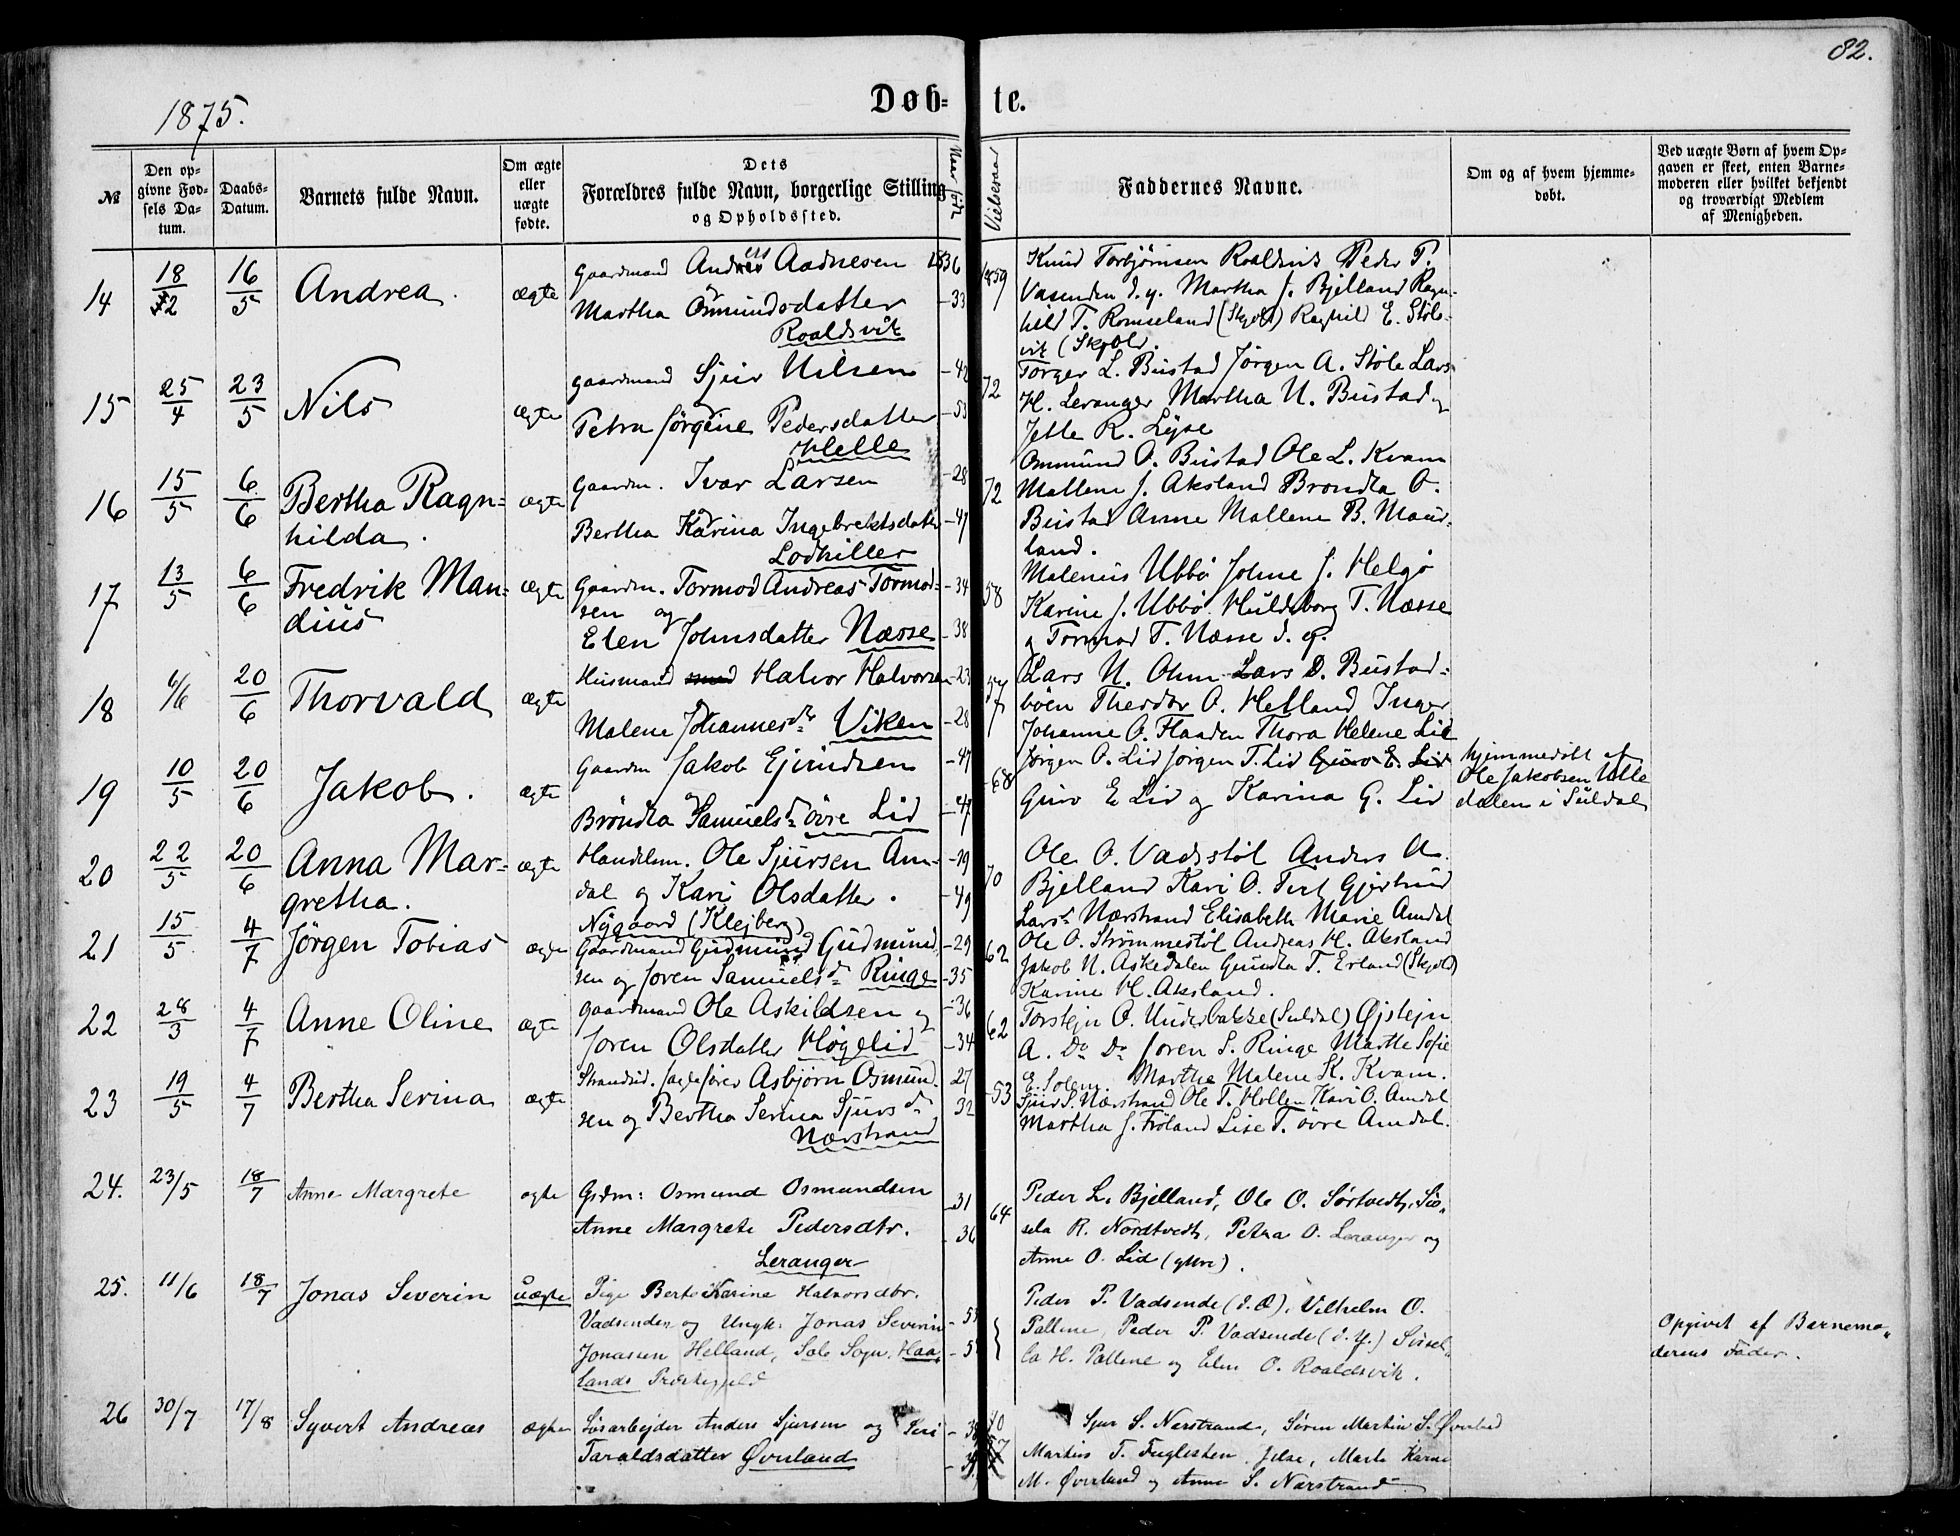 82.
1875.
Døb-
te.
№
Den op-
givne Fød-
sels Da-
tum.
Daabs-
Datum.
Barnets fulde Navn.
Om ægte
eller
uægte
fødte.
Dets
Forældres fulde Navn, borgerlige Stilling
og Opholdssted.
Naar født
Vielsesaar
Faddernes Navne.
Om og af hvem hjemme-
døbt.
Ved uægte Børn af hvem Op-
gaven er skeet, enten Barne-
moderen eller hvilket bekjendt
og troværdigt Medlem
af Menigheden.
14 18/2 16/5 Andrea. ægte
Gaardmand Anders Aadnesen 1836
Martha Osmundsdatter -33
Roaldsvik
1859
Knud Torbjørnsen Roaldsvik Peder P.
Vasenden d. y. Martha J. Bjelland Ragn-
hild T. Romseland (Skjold) Raghild E. Støls-
vik (Skjold.
15 25/4 23/5 Nils ægte
Gaardmand Sjur Nilsen -42
og
Petra Jørgine Pedersdatter -53
Helle
72
Torger L. Bustad Jørgen A. Støle Lars
H. Leranger Martha N. Bustad og
Jelle R. Lyse
16 15/5 6/6 Bertha Ragn-
hilda. ægte
Gaardm. Ivar Larsen -28
og
Bertha Karina Ingebrektsdatter -47
Lodhiller
72
Ommund O. Bustad Ole L. Kvam
Mallene J. Aksland Brondla O.
Bustad Anne Mallene B. Maur-
land.
17 13/5 6/6 Fredrik Man-
dius ægte
Gaardm. Tormod Andreas Tormod- -34
sen og
Elen Johnsdatter Næsse -38
58
Malenius Ubbø Johne J. Helgø
Karine J. Ubbø Huldborg T. Næsse
og Tormod T. Næsse d. y.
18 6/6 20/6 Thorvald ægte
Husmand med Halvor Halvorsen -23
og
Malene Johannesdr Viken -28
57
Lars N. Ohm Lars D. Bustad-
bøen Theodor O. Helland Inger
Johanne O. Flaaden Thora Helene Lid
19 10/5 20/6 Jakob. ægte
Gaardm Jakob Ejvindsen -47
og
Brøndla Samuelsd. øvre Lid -47
68
Jørgen O. Lid Jørgen T. Lid Guro E. Lid
Guro E Lid og Karina G. Lid
hjemmedøbt af
Ole Jakobsen Ulle
dalen i Suldal
20 22/5 20/6 Anna Mar-
gretha. ægte
Handelsm. Ole Sjursen Am- -19
dal og Kari Olsdatter. -49
Nygaard (Klejberg)
70
Ole O. Vadsstøl Anders A.
Bjelland Kari O. Tert Gjertrud
Larsd Nærstrand Elisabeth Marie Amdal
21 15/5 4/7 Jørgen Tobias ægte
Gaardmand Gudmund Gudmund- -29
sen og Joren Samuelsd. Ringe -35
62
Ole O. Strømmestøl Andreas H. Aksland
Jakob N. Askedalen Gundla T. Erland (Skjold)
Karine H. Aksland.
22 28/3 4/7 Anne Oline ægte
Gaardmand Ole Askildsen og -36
Joren Olsdatter Høgelid -34
62
Torstejn O. Underbakke (Suldal) Øjstejn
A. Do Do Joren S. Ringe Marthe Sofie
E. Solem. Martha Malene K. Kvam.
23 19/5 4/7 Bertha Serina ægte
Strandsid. Asbjørn Osmund- 27
sen og Bertha Serina Sjursd. 32
Nærstrand
53
Sjur S. Nærstrand Ole T. Hollen Kari O. Amdal
Martha J. Frøland Lise T. øvre Amdal.
24. 23/5 18/7 Anne Margrete ægte
Grdm: Osmund Osmundsen 31
Anne Margrete Pedersdtr. 36
Leranger
64
Peder L. Bjelland, Ole O. Sørtvedt, Sis-
sela R. Nordtvedt, Petra O. Leranger og
Anne O. Lid (ytre).
25. 11/6 18/7 Jonas Severin uægte
Pige Berte Karine Halvorsdtr.
Vadsenden og Ungk. Jonas Severin
Jonassen Helland, Sole Sogn, Haa-
lands Præstegjeld
Peder P. Vadsende (d. Æ), Vilhelm O.
Pallene, Peder P. Vadsende (d. Y.) Sissel-
la H. Pallene og Elen O. Roaldsvik.
Opgivet af Barnemo-
derens Fader.
26 30/7 17/8 Syvert Andreas ægte
Anders Sjursen og Siri
Taraldsdatter Øverland
Sjur S. Nærstrand, Søren Martin S. Øverland
Martius T. Fuglesten Jelse, Marte Karine
M. Øverland og Anne S. Nærstrand